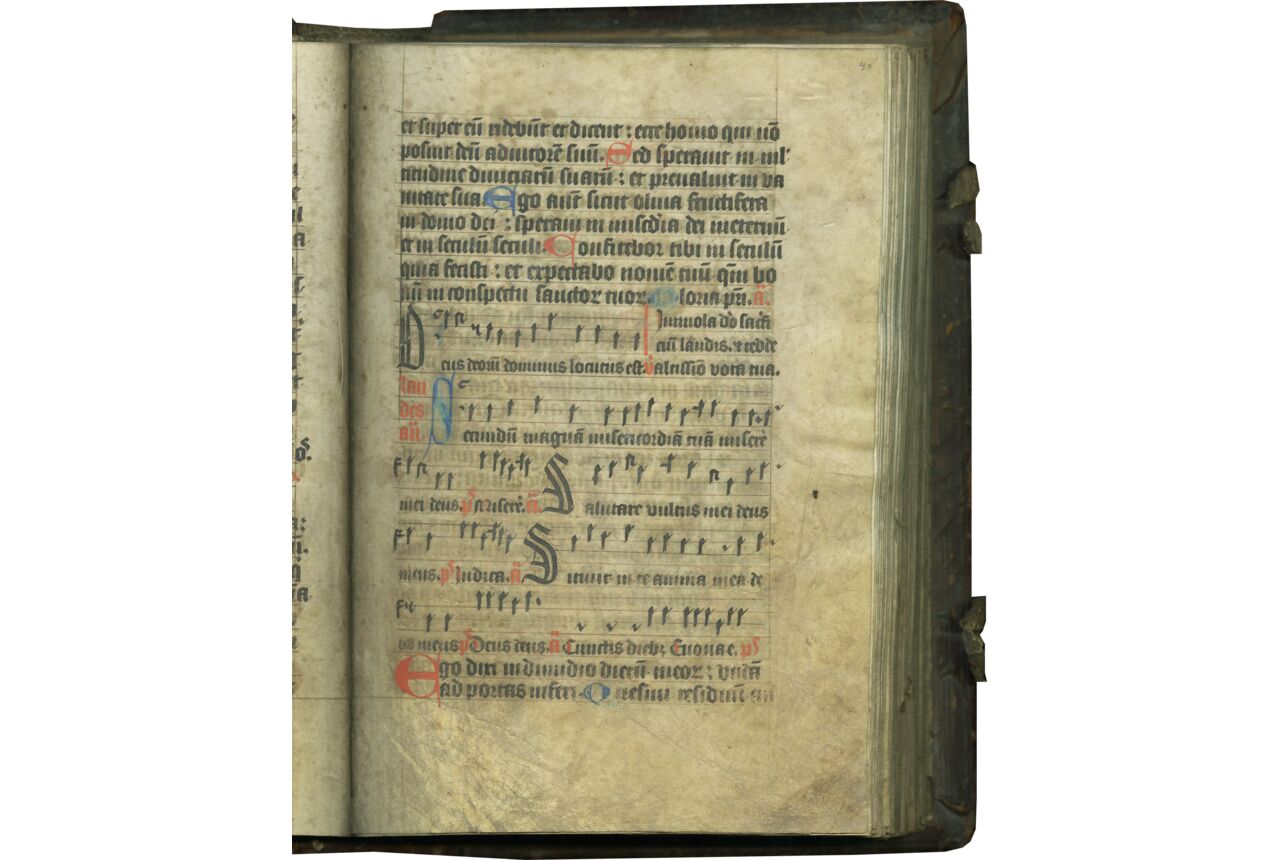 40
et super eū ridebūt et dicent : ecce homo qui nō
posuit deū adiutorē suū. Sed sperauit in ml'
titudine diuiciarū suarū : et preualuit in va
nitate sua Ego aūt sicut oliua fructifera
in domo dei : speraui in miscd̄ia dei ineternū
et in seculū seculi. Confitebor tibi in seculū
quia fecisti : et expectabo nomē tuū qm̄ bo
nū in conspectu sanctoꝝ tuoꝝ. Gloria pr̄i. a̅.
Immola dō sacri
ciū laudis. et redde
Deus deoꝝ dominus locutus est v̄ altissīo vota tua.
lau
des
an̄. Secundū magnā misericordiā tuā misere
mei deus. pˢ Miserē. a̅. Salutare vultus mei deus
meus. pˢ Judica. a̅ Sitiuit in te anima mea de
us meus pˢ Deus deus. a̅ Cunctis diebꝫ Euouae. pˢ
Ego dixi in dimidio dierū meoꝝ : vadā
ad portas inferi. Quesiui residuū an